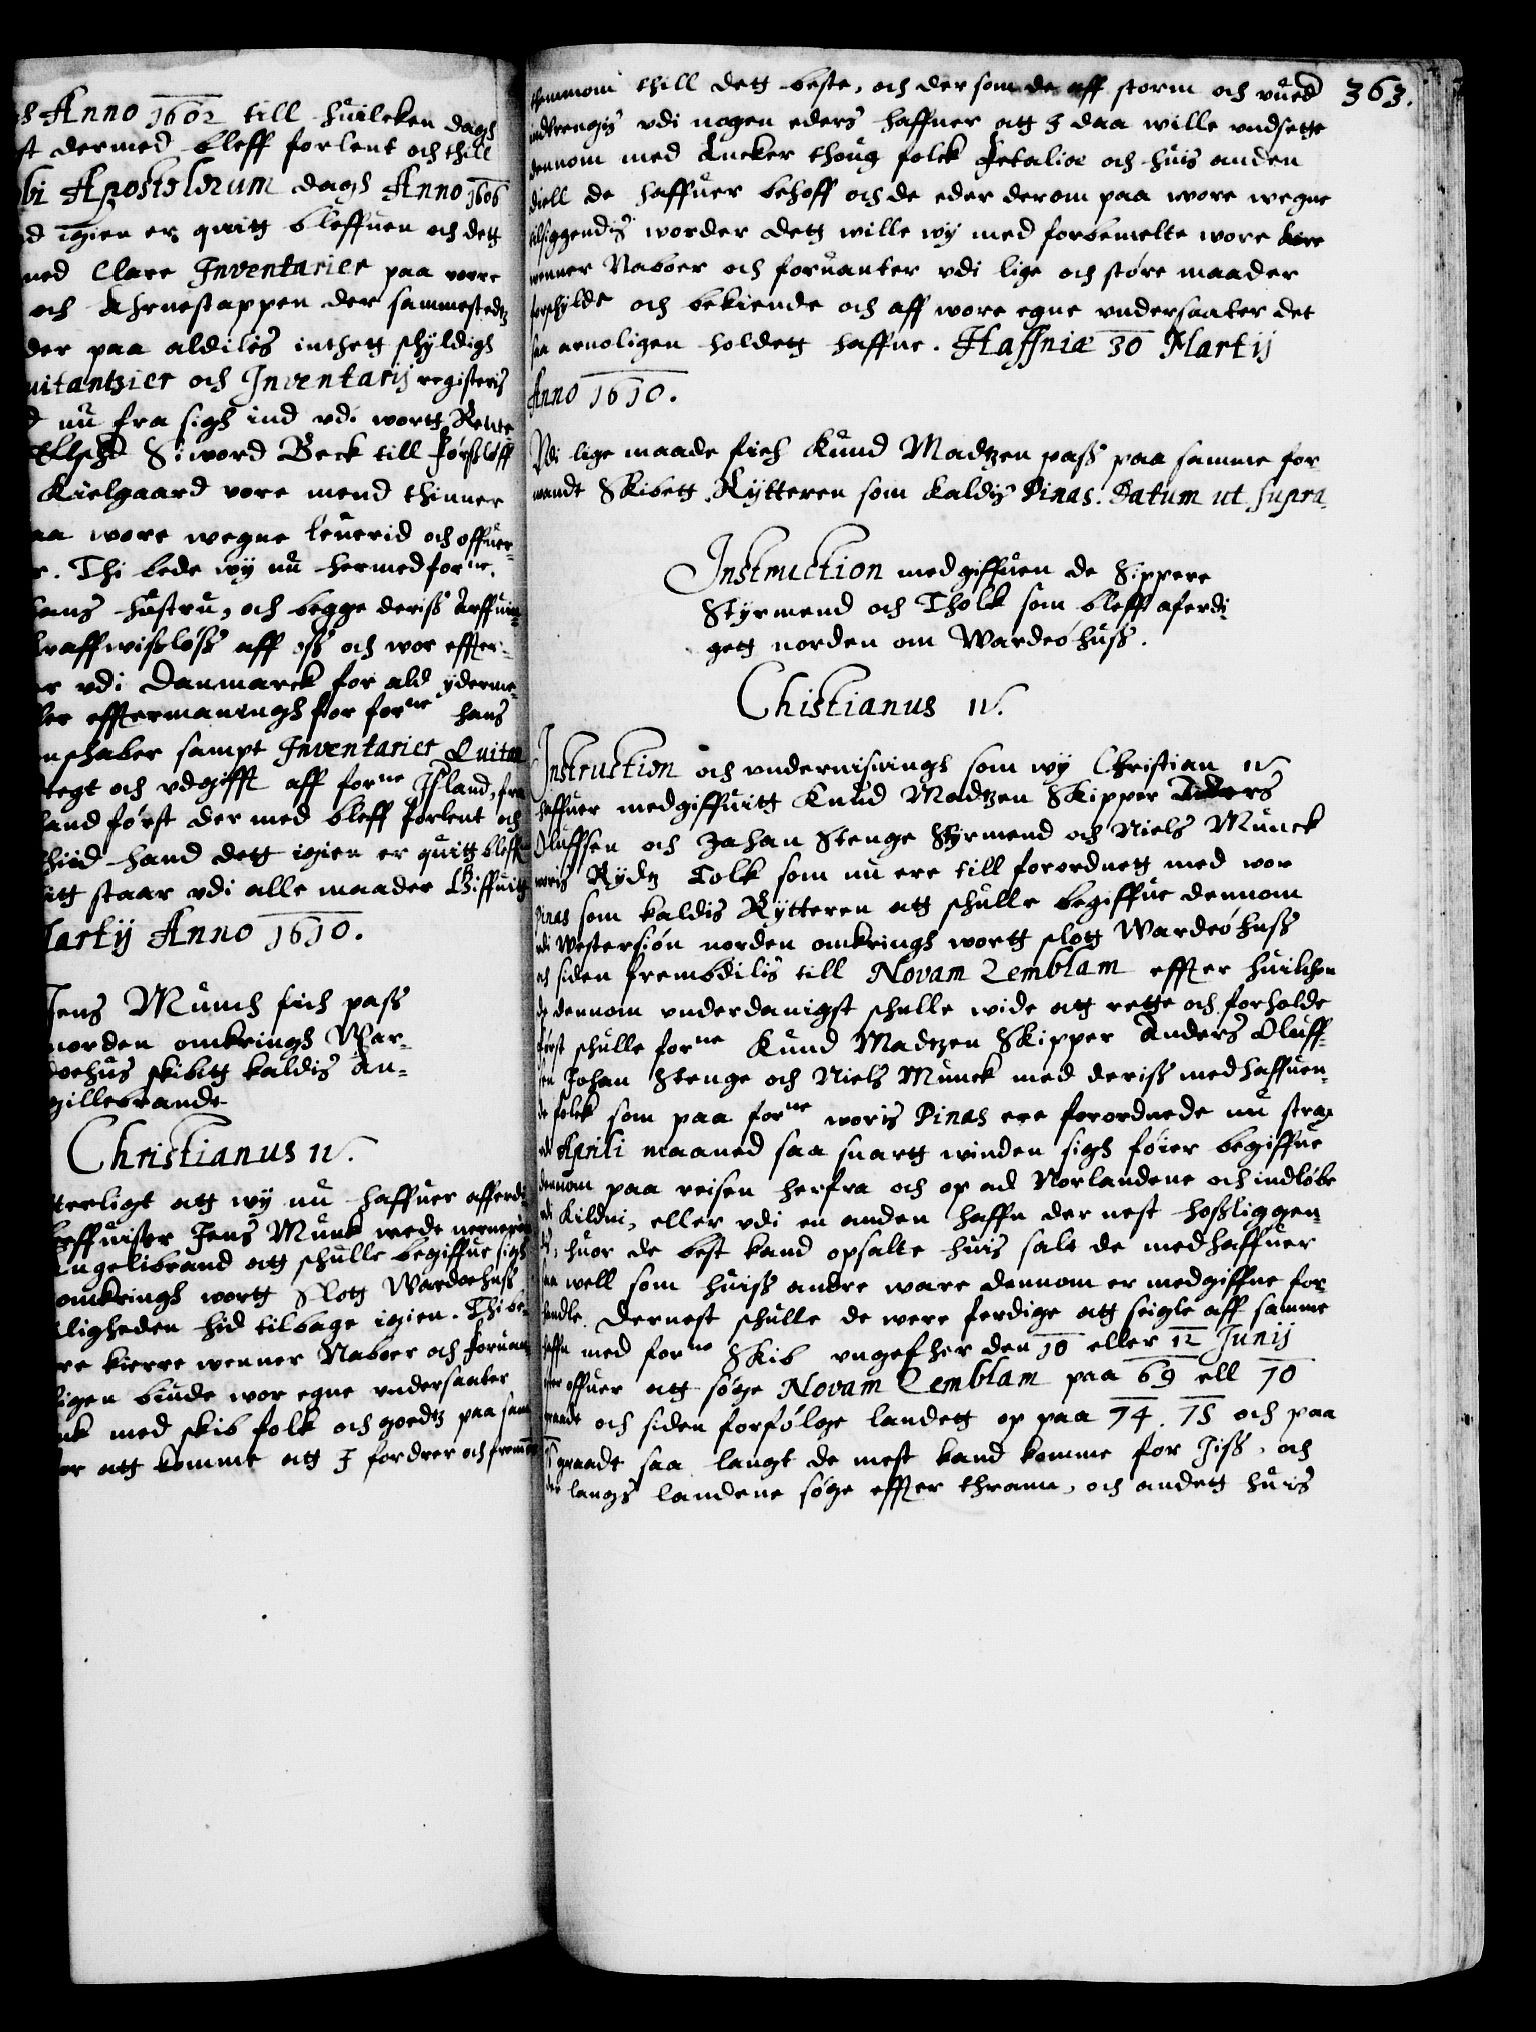 Anno 1602 till huilcken dagh
dermed bleff forlent och thill
Apostolorum dagh Anno 1606
igien er quitg bleffuen och dett
med Clare Inventarier paa vorre
och Ahrnestappen der sammestedtz
der paa aldilis inthett schyldigh
uitantzier och Inventarij registeris
nu fra sigh ind vdi wortt Rente
Siword Beck till Førsløff
Kielgaard vore mend thinner
wore wegne leuerid och offuer-
Thi bede wy nu hermed forne
hans hustru, och begge deriss Arffuin-
kraffwisløss aff oss och wor effter-
vdi Danmarck for ald yderme-
efftermaningh for forne hans
schaber sampt Inventarier Quitan
tegt och vdgifft aff forne Island, fra
land først der med bleff forlent och
thiid hand dett igien er quitt bleff
staar vdi alle maader Giffuitt
Martij Anno 1610.
Jens Munch fich pass
norden omkringh War-
doehus skibitt kaldis An-
gillebrande
Christianus IV.
terligt att wy nu haffuer afferdi-
beffuister Jens Munk mede nerueren
Engelibrand att schulle begiffue sigh
omkringh wortt Slott Wardoehuss
ligheden hid tilbage igien. Thi be-
kierre wenner Naboer och foruan-
ligen biude wor egne vndersaater
med skib folk och goedtz paa sam
att komme att I fordrer och fremm
363.
themmom thill dett beste, och der som de aff storm och vued
indtrengis vdi nogen eders haffner att I daa wille vndsette
dennom med Ancker thoug folck fetalie och huis anden
diell de haffuer behoff och de eder derom paa wore wegne
tilsiggendis worder dett wille wy med forbemelte wore kere
wenner Naboer och foruanter vdi lige och støre maader
forschylde och bekiende och aff wore egne vndersaater det
saa aruoligen holdett haffue. Haffniæ 30 Martij
Anno 1610.
Vdi lige maade fich Knud Madtzen pass paa samme for
wandt Skibett Rytteren som kaldis Pinas. Datum ut supra.
Instruction medgiffuen de Sippere
Styrmend och Tholk som bleff aferdi
gett norden om Wardøhuss.
Chistianus IV.
Instruction och vnderuisningh som wy Christian IV
haffuer medgiffuitt Knud Madtzen Skipper Anders
Oluffsen och Johan Stenge Styrmend och Niels Munck
woris Rydtz Tolk som nu ere till forordnett med wor
Pinas som kaldis Rytteren att schulle begiffue dennom
vdi Westersiøn norden omkringh wortt slott Wardøhuss
och siden frembdilis till Novam Zemblam effter huilchen
de dennom vnderdanigst schulle wide att rette och forholde
først schulle forne Knud Madtzen Skipper Anders Oluff-
sen Johan Stenge och Niels Munck med deriss medhaffuen-
de folck som paa forne woris Pinas ere forordnede nu strax
vdi Aprili maaned saa snartt winden sigh føier begiffue
dennom paa reisen herfra och op ad Norlandene och indløbe
vdi Kildni, eller vdi en anden haffn der nest hossliggen-
dis, huor de best kand opsalte huis salt de medhaffuer
saa well som huiss andre ware dennom er medgiffne for-
handle. Dernest schulle de were ferdige att seigle aff samme
haffn med forne Skib vngefher den 10 eller 12 Junij
offuer att søge Novam Zemblam paa 69 ell 70
graadt och siden forfølge landett op paa 74. 75 och paa
76 graadt saa langt de mest kand komme for Jiss, och
der langs landene søge effter thrann, och andett huis